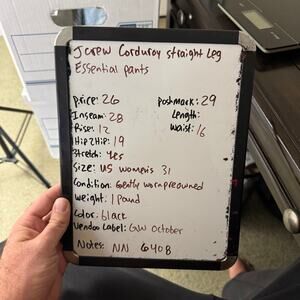 Jcrew Corduroy straight Leg
Essential pants
Price: 26 poshmark: 29
Inseam: 28 Length:
Rise: 12 waist: 16
Hip 2 Hip: 19
Stretch: Yes
Size: US women's 31
Condition: Gently worn preowned
weight: 1 pound
Color: black
Vendoo Label: GW October
Notes: NN 6408